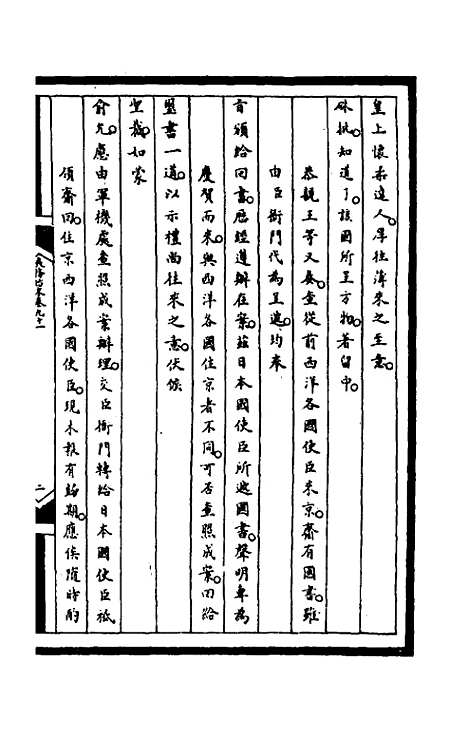 皇上懷柔遠人。厚往薄來之至意。
硃批知道了。該國所呈方物。著留中。
恭親王等又奏。查從前西洋各國使臣來京。齎有國書。雖
由臣衙門代為呈遞。均奉
旨頒給回書。歷經遵辦在案。茲日本國使臣所遞國書。聲明專為
慶賀而來。與西洋各國住京者不同。可否查照成案。回給
璽書一道。以示禮尚往來之意。伏候
聖裁。如蒙
俞允。應由軍機處查照成案辦理。交臣衙門轉給日本國使臣祗
領齎回。住京西洋各國使臣。現未報有的期。應俟隨時酌
夷務始末卷九十一
二